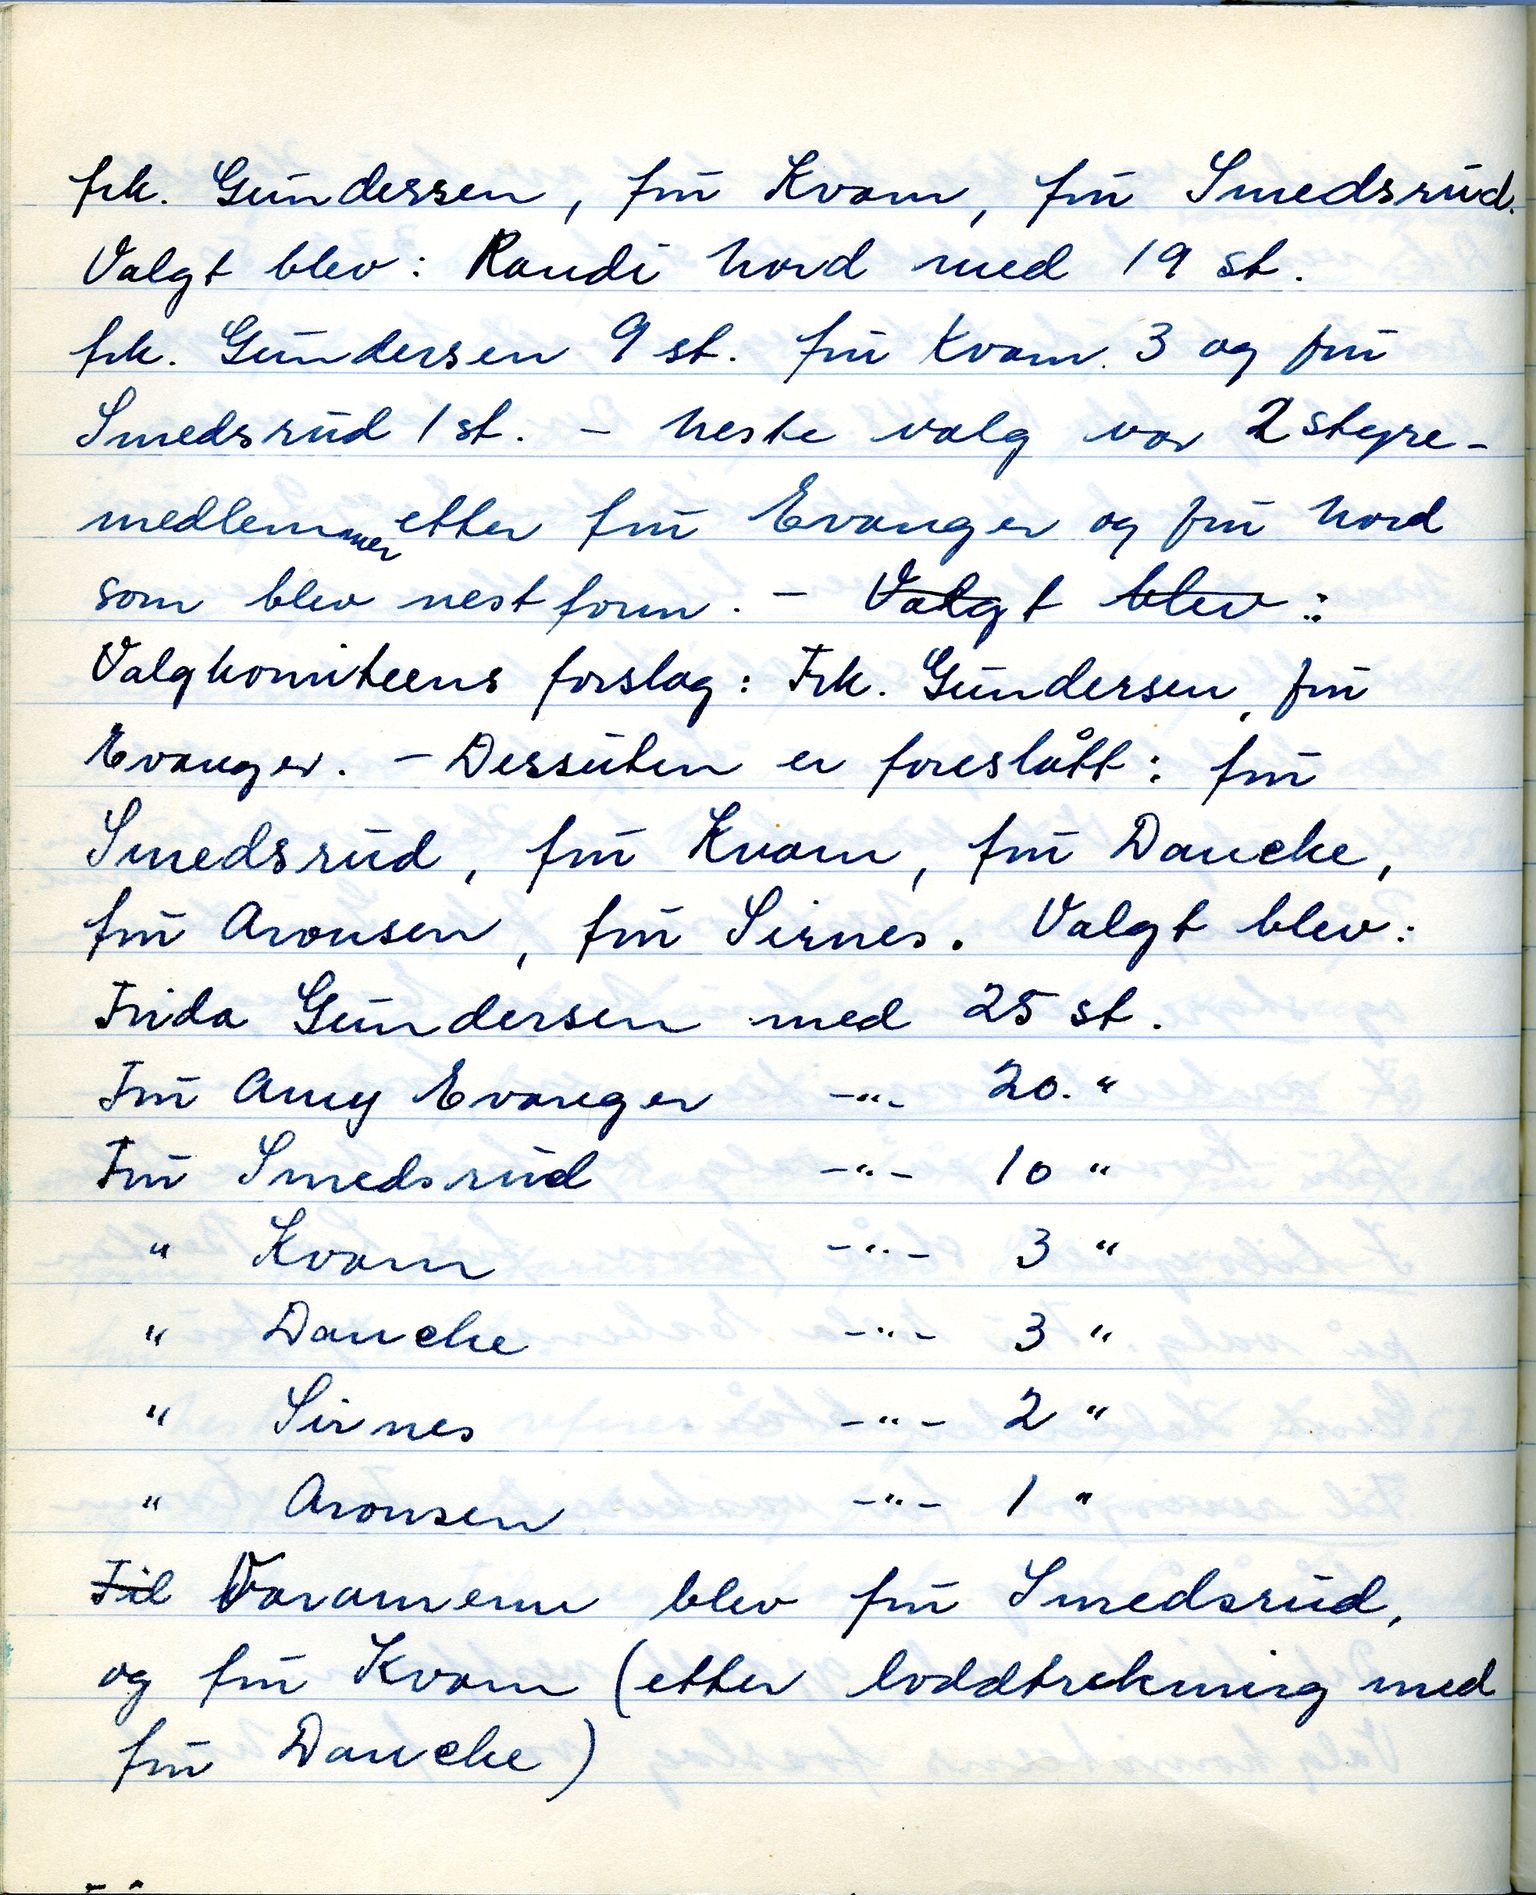 frk. Gundersen, fru Kvam, fru Smedsrud.
Valgt blev: Randi Nord med 19 st.
frk. Gundersen 9 st. fru Kvam 3 og fru
Smedsrud 1 st. – Neste valg var 2 styre-
medlemmer etter fru Evanger og fru Nord
som blev nestform. – Valgt blev :
Valgkomiteens forslag: Frk. Gundersen, fru
Evanger. – Dessuten er foreslått: fru
Smedsrud, fru Kvam, fru Dancke,
fru Aronsen, fru Sirnes. Valgt blev:
Frida Gundersen med 25 st.
Fru Amy Evanger –"– 20. "
Fru Smedsrud –"– 10 "
" Kvam –"– 3 "
" Dancke –"– 3 "
" Sirnes –"– 2 "
" Aronsen –"– 1 "
Til Varamenn blev fru Smedsrud,
og fru Kvam (etter loddtrekning med
fru Dancke)